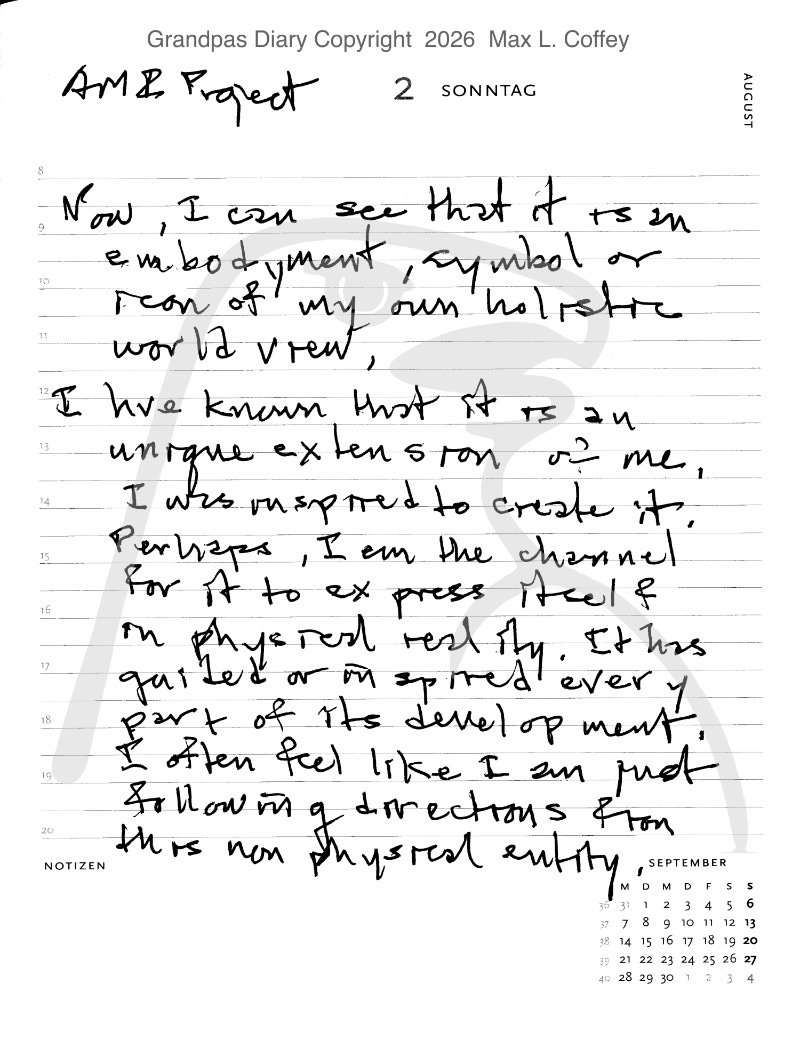 Grandpas Diary Copyright 2026 Max L. Coffey
AMI Project 2 SONNTAG
AUGUST
8
Now, I can see that it is an
9
embodyment, symbol or
10
icon of my own holistic
11
world view,
12
I hve known that it is an
13
unique extension of me,
14
I was inspired to create it.
Perhaps, I em the channel
15
for it to express itself
16
in physical reality. It has
17
guided or inspired every
18
part of its development.
I often feel like I am just
19
following directions from
20
this non physical entity,
NOTIZEN
SEPTEMBER
M D M D F S S
36 31 1 2 3 4 5 6
37 7 8 9 10 11 12 13
38 14 15 16 17 18 19 20
39 21 22 23 24 25 26 27
40 28 29 30 1 2 3 4